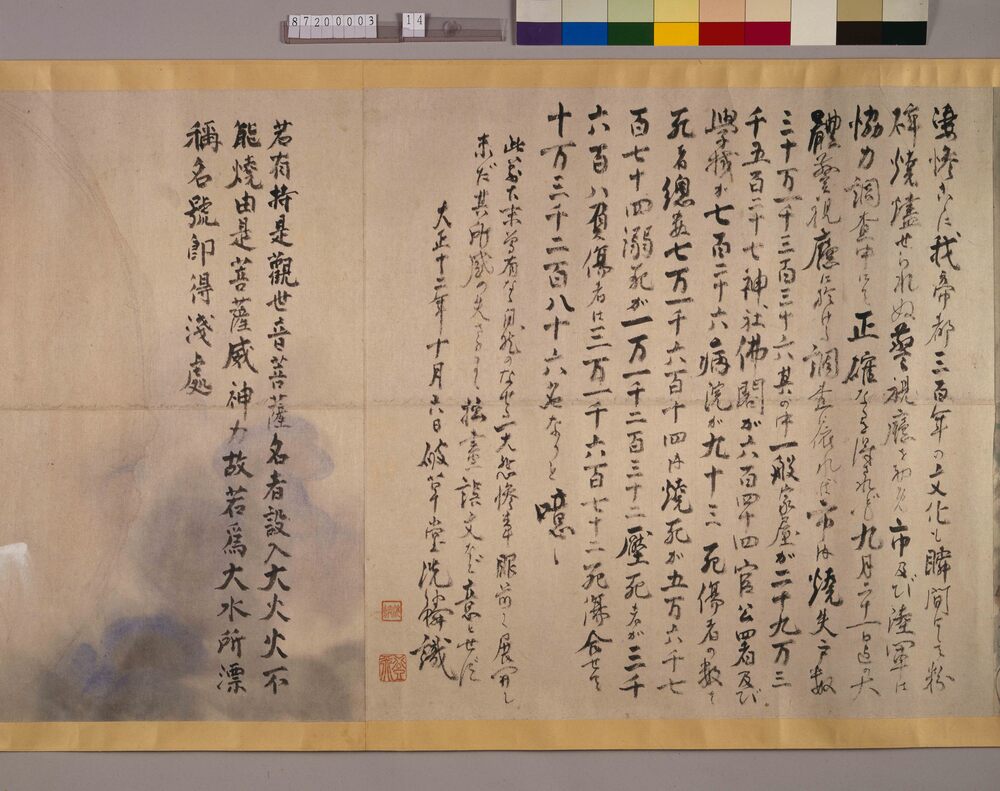 凄惨なるに我帝都三百年の文化も瞬間にして粉
砕焼燼せられぬ警視廳を初め市及び陸軍は
協力調査中にて正確なるを得ざれども九月二十一日迄の大
體警視廳に於ける調査に依れば市内焼失戸数
三十万一千三百三十六其の中一般家屋が二十九万三
千五百二十七神社佛閣が六百四十四官公署及び
學校が七百二十六病院が九十三死傷者の数は
死者總数七万一千六百十四内焼死が五万六千七
百七十四溺死が一万一千二百三十二壓死者が三千
六百八負傷者は三万一千六百七十二死傷合せて
十万三千二百八十六名なりと噫
此前古未曽有なる自然のなせる一大悲惨事眼前に展開し
未だ其所感の失せざるに拙画誤文など意とせず
大正十二年十月六日破草堂洗鱗識
若有持是觀世音菩薩名者設入大火火不
能燒由是菩薩威神力故若爲大水所漂
稱名號即得淺處
87200003 14